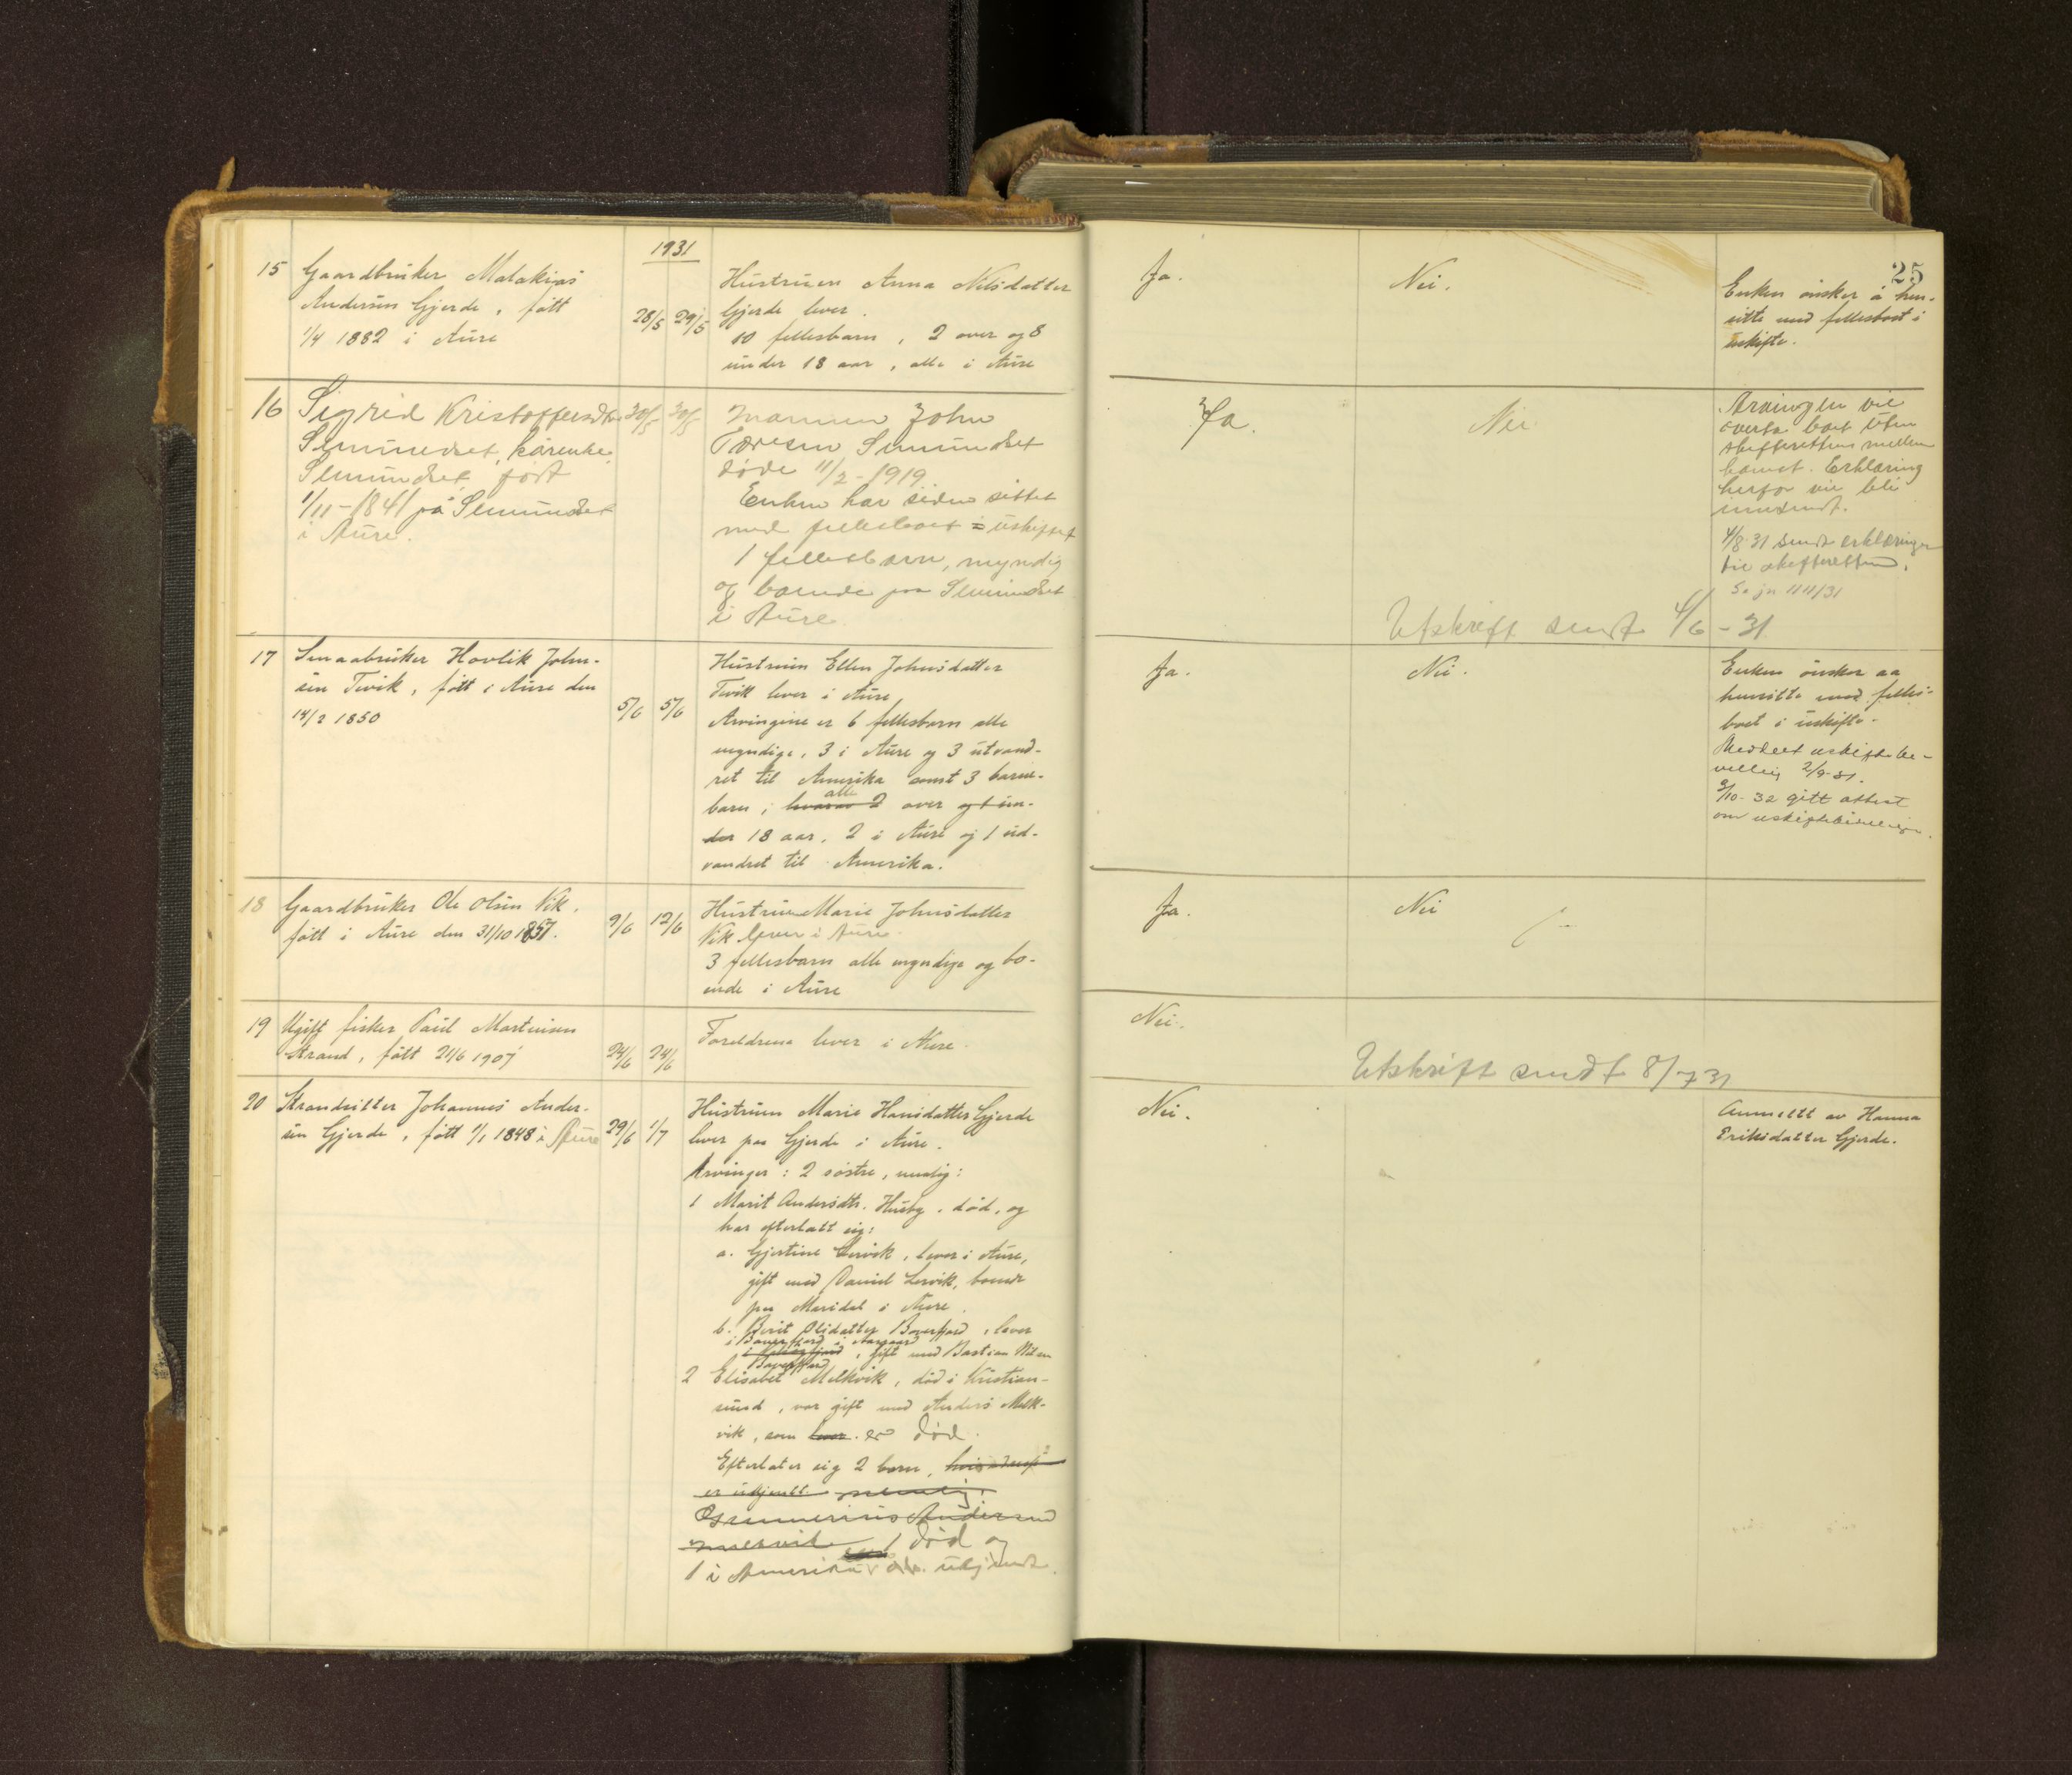 1931
25
15 Gaardbruker Malakias
Andersen Gjerde, født
1/4 1882 i Aure
28/5 29/5
Hustruen Anna Nilsdatter
Gjerde lever.
10 fellesbarn, 2 over og 8
under 18 aar, alle i Aure
Ja.
Nei.
Enken ønsker å hen-
sitte med fellesboet i
uskifte.
16 Sigrid Kristoffersdtr
Semundset, kårenke
Semundset, født
1/11-1841 på Semundset
i Aure.
30/5 30/5
Mannen John
Toresen Semundset
døde 11/2-1919
Enken har siden sittet
med fellesboet i uskiftet
1 fellesbarn, myndig
og boende paa Semundset
i Aure.
Ja.
Nei
Arvingen vil
overta boet uten
skifterettens mellem
komst. Erklæring
herfor vil bli
innsendt.
4/8-31 sendt erklæringen
til skifteretten.
Se jn 1111/31
Utskrift sendt 4/6-31
17 Smaabruker Hovlik John-
sen Tevik, født i Aure den
14/2 1850
5/6 5/6
Hustruen Ellen Johnsdatter
Tevik lever i Aure
Arvingene er 6 fellesbarn alle
myndige, 3 i Aure og 3 utvand-
ret til Amerika samt 3 barne-
barn, hvorav 2 alle over og 1 un-
der 18 aar, 2 i Aure og 1 ud-
vandret til Amerika.
Ja.
Nei.
Enken ønsker aa
hensitte med felles-
boet i uskifte.
Meddelt uskiftebe-
villing 2/9-31.
3/10-32 gitt attest
om uskiftebevillingen.
18 Gaardbruker Ole Olsen Vik,
født i Aure den 31/10 1857.
9/6 12/6
Hustruen Marie Johnsdatter
Vik lever i Aure.
3 fellesbarn alle myndige og bo-
ende i Aure
Ja.
Nei
19 Ugift fisker Paul Martinsen
Strand, født 21/6 1907
24/6 24/6
Foreldrene lever i Aure.
Nei.
Utskrift sendt 8/7 31
20 Strandsitter Johannes Ander-
sen Gjerde, født 1/1 1848 i Aure
29/6 1/7
Hustruen Marie Hansdatter Gjerde
lever paa Gjerde i Aure.
Arvinger: 2 søstre, nemlig:
1 Marit Andersdtr. Husby, død, og
har efterlatt sig:
a. Gjertine Lervik, lever i Aure,
gift med Daniel Lervik, boende
paa Meridal i Aure.
b. Berit Olsdatter Bøverfjord, lever
i Bøverfjord i
, gift med Bastian Nilsen
Bøverfjord
2 Elisabet Melkvik, død i Kristian-
sund, var gift med Anders Melk-
vik, som lever er død.
Efterlater sig 2 barn,
er ukjent. nemlig:
Andersen
1 død og
1 i Amerika, adr. ukjendt.
Nei.
Anmeldt av Hanna
Eriksdatter Gjerde.